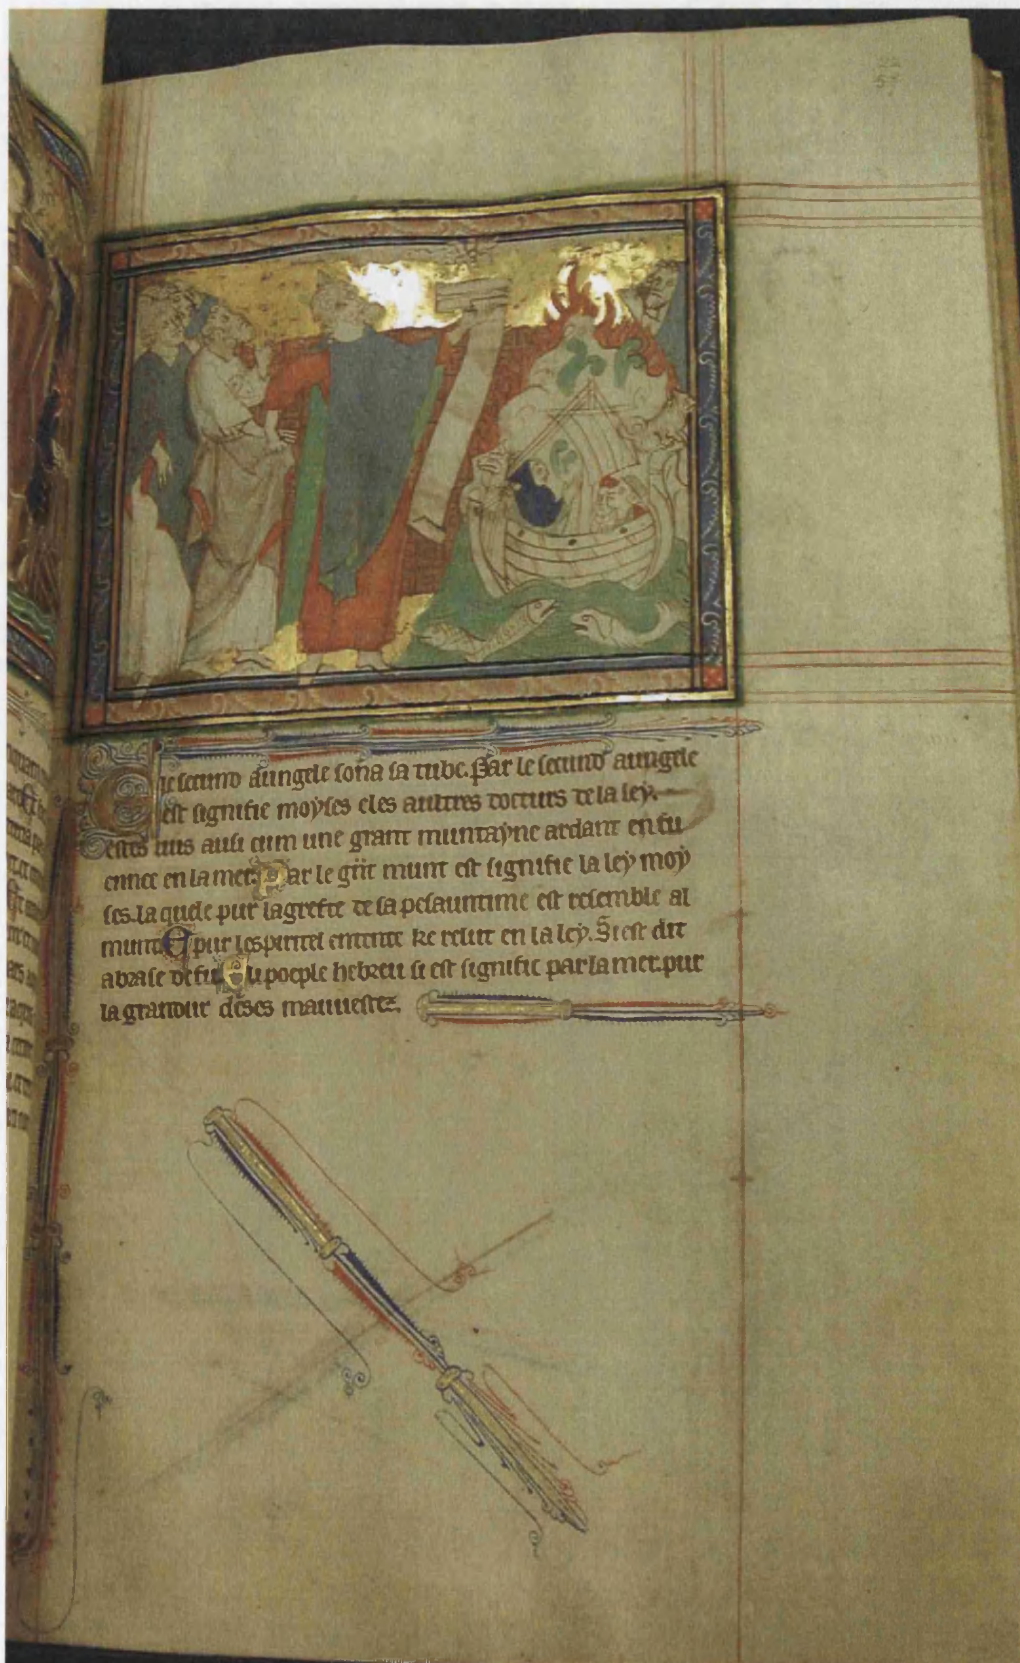 E le secund aungele sona sa tube. Par le secund aungele
est signifie moyses e les aultres docturs de la ley.
estes uus ausi cum une grant muntayne ardant en fu
enuee en la mer. Par le gnt munt est signifie la ley moy
ses. la quele pur lagrefte de sa pesauntime est resemble al
munt. E pur lespiritel entente ke relut en la ley. Si est dit
abrase de fu. E li poeple hebreu si est signifie par la mer. pur
la grandur de ses mauuestez.